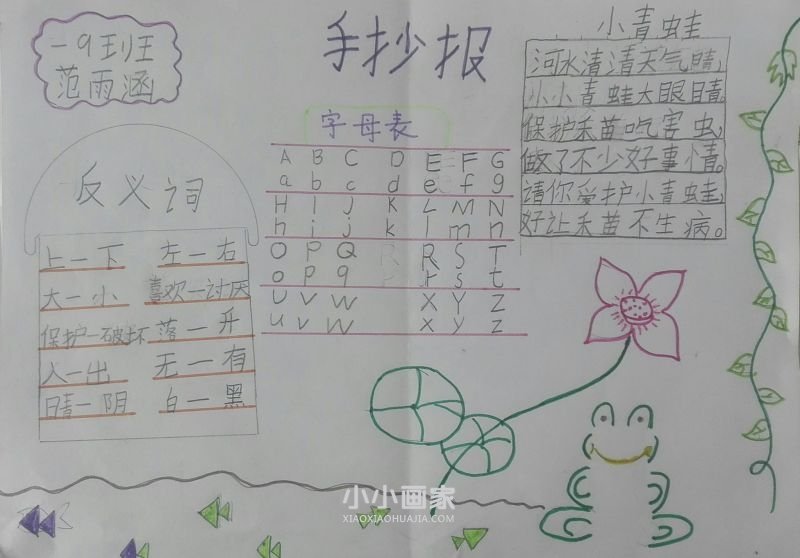 一9班
范雨涵
手抄报
小青蛙
河水清清天气晴,
小小青蛙大眼睛。
保护禾苗吃害虫,
做了不少好事情。
请你爱护小青蛙,
好让禾苗不生病。
字母表
A B C D E F G
a b c d e f g
H I J K L M N
h i j k l m n
O P Q R S T
o p q r s t
U V W X Y Z
u v w x y z
反义词
上一下 左一右
大一小 喜欢一讨厌
保护一破坏 落一升
入一出 无一有
晴一阴 白一黑
小小画家
XIAOXIAOHUAJIA.COM